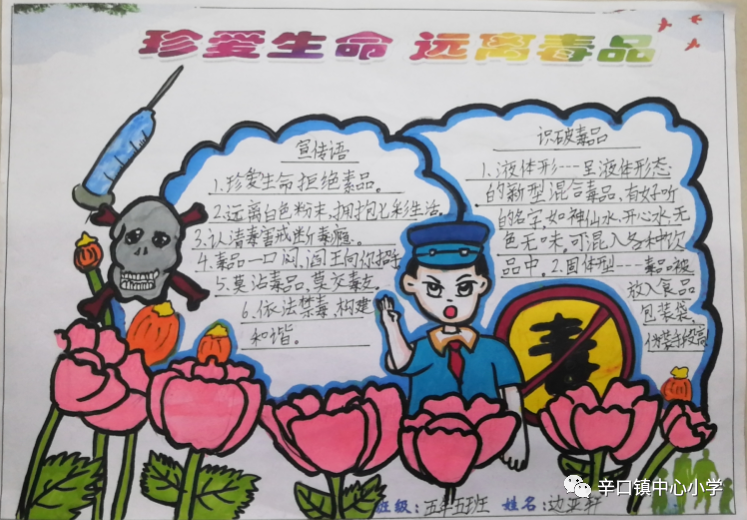 珍爱生命 远离毒品
宣传语
1.珍爱生命拒绝毒品。
2.远离白色粉末,拥抱七彩生活。
3.认清毒害戒断毒瘾。
4.毒品一口闷,阎王向你招手
5.莫沾毒品,莫交毒友。
6.依法禁毒 构建
和谐。
识破毒品
1.液体形---呈液体形态
的新型混合毒品,有好听
的名字,如神仙水、开心水,无
色无味,可混入各种饮
品中。2.固体型---毒品被
放入食品
包装袋,
伪装手段高
毒
班级:五年五班 姓名:边
辛口镇中心小学